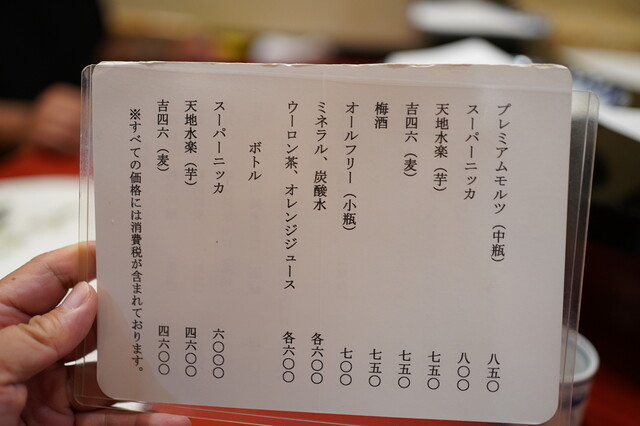 プレミアムモルツ（中瓶） 八五〇
スーパーニッカ 八〇〇
天地水楽（芋） 七五〇
吉四六（麦） 七五〇
梅酒 七五〇
オールフリー（小瓶） 七〇〇
ミネラル、炭酸水 各六〇〇
ウーロン茶、オレンジジュース 各六〇〇
ボトル
スーパーニッカ 六〇〇〇
天地水楽（芋） 四六〇〇
吉四六（麦） 四六〇〇
※すべての価格には消費税が含まれております。